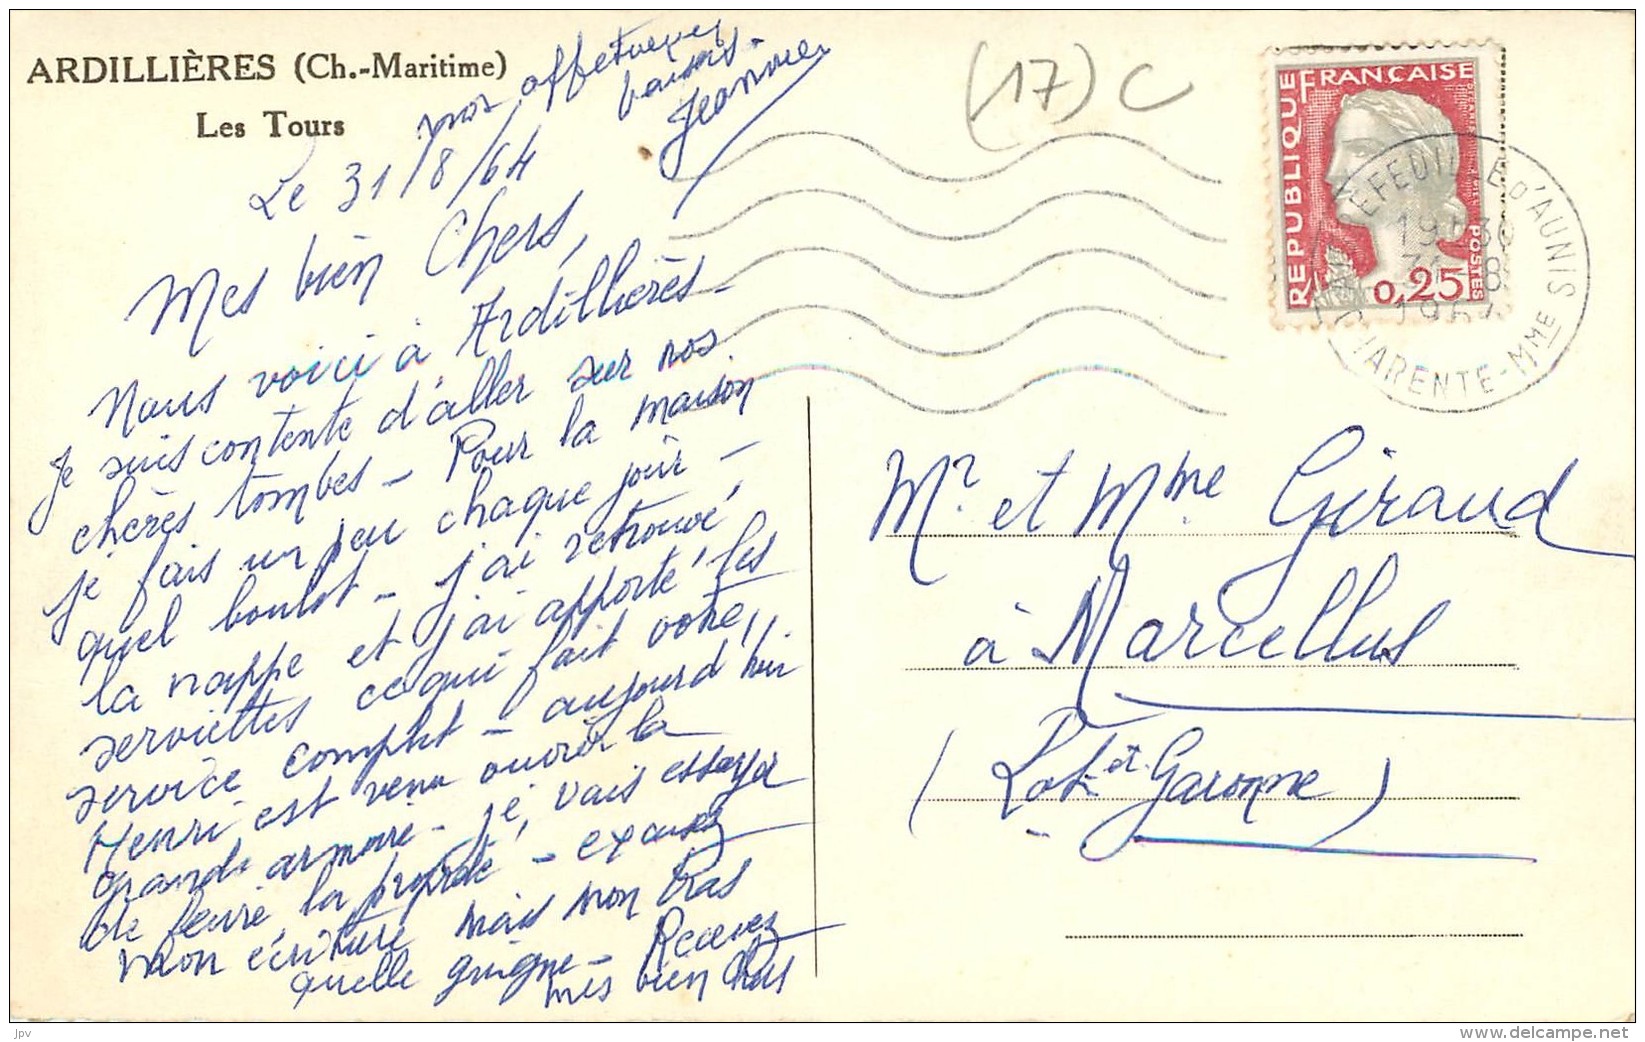 ARDILLIÈRES (Ch.-Maritime)
Les Tours
Le 31/8/64
Mes bien Chers,
Nous voici à Ardillières-
Je suis contente d'aller sur nos
chères tombes - Pour la maison
je fais un peu chaque jour -
quel boulot - j'ai retrouvé,
la nappe et j'ai apporté les
serviettes ce qui fait votre,
service complet - aujourd'hui
Henri, est venu ouvrir la
grande armoire - je, vais essayer
de faire, la - excusez
mon écriture mais mon bras
quelle guigne - Recevez
mes bien chers
nos affetueux
baisers -
Jeannine
(17) C
RÉPUBLIQUE FRANÇAISE
POSTES
0,25
EFEUILLE D'AUNIS
CHARENTE-MME
Mr et Mme Giraud
à Marcellus
(Lot et Garonne)
jpv
www.delcampe.net